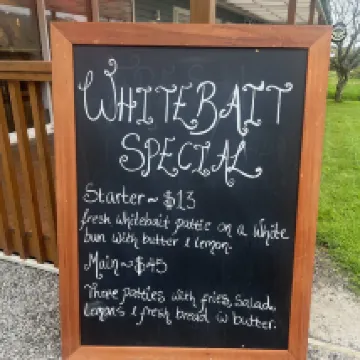 WHITEBAIT
SPECIAL
Starter ~ $13
fresh whitebait pattie on a white
bun with butter & lemon.
Main ~ $45
Three patties with fries, Salad,
lemons & fresh bread w butter.